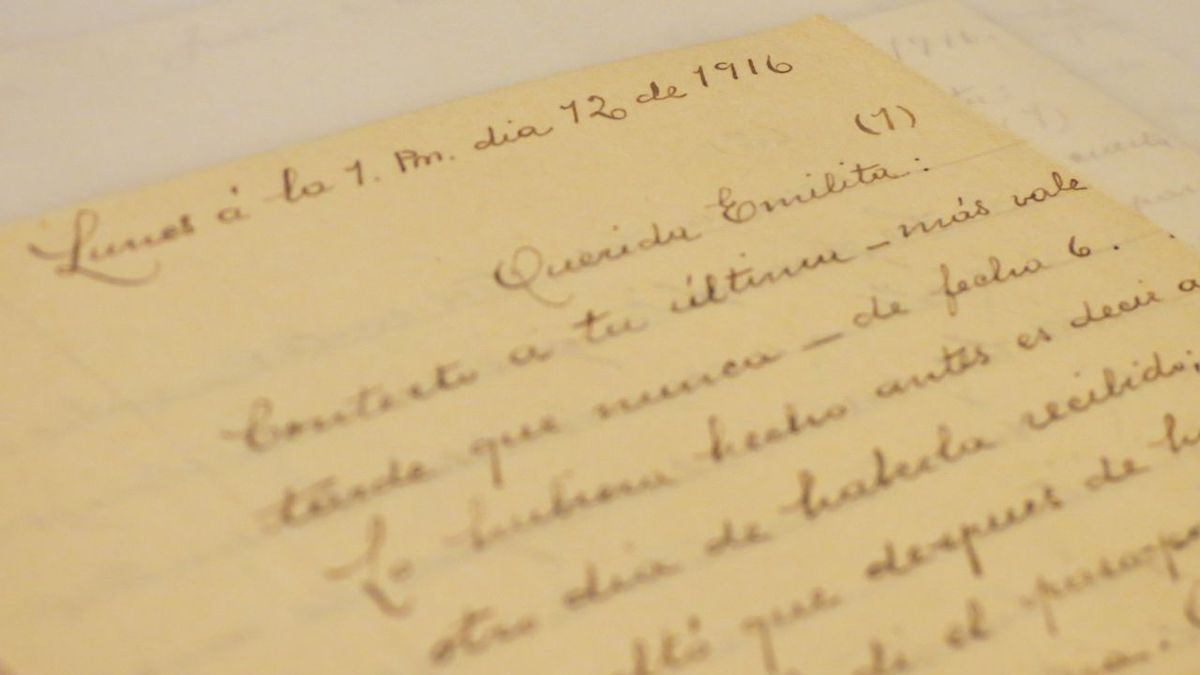 Lunes á la 1. Pm. dia 12 de 1916
(1)
Querida Emilita:
Contesto a tu última – más vale
tarde que nunca – de fecha 6.
Lo hubiera hecho antes es decir a
otro dia de haberla recibido;
que despues de
di el